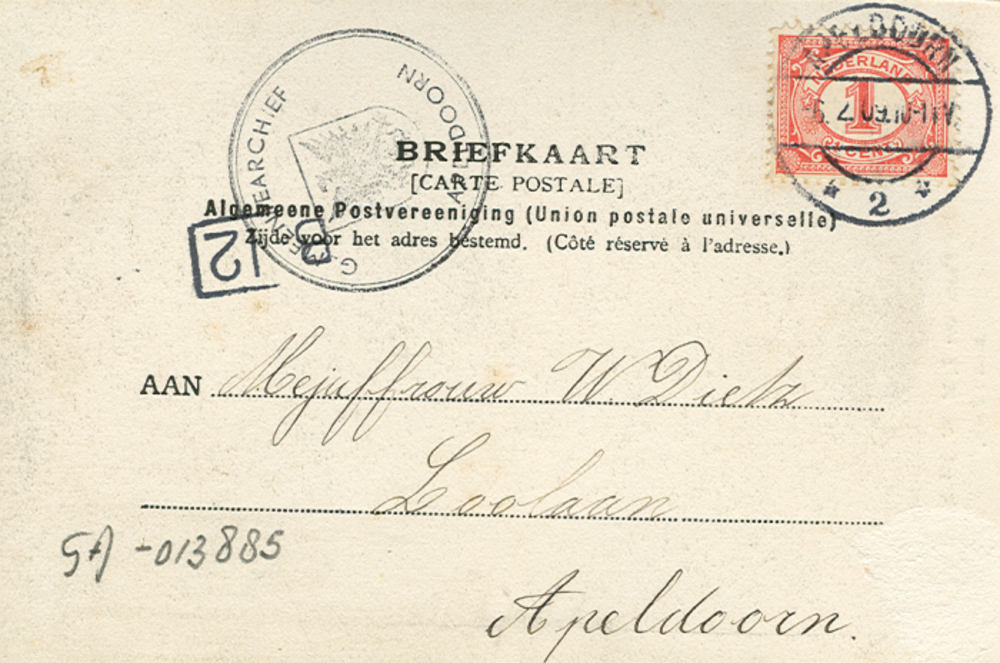 APELDOORN
NEDERLAND
1
CENT
2
GEMEENTEARCHIEF APELDOORN
BRIEFKAART
[CARTE POSTALE]
Algemeene Postvereeniging (Union postale universelle)
Zijde voor het adres bestemd. (Côté réservé à l'adresse.)
B
12
AAN Mejuffrouw W. Dietz
Loolaan
GA -013885
Apeldoorn.